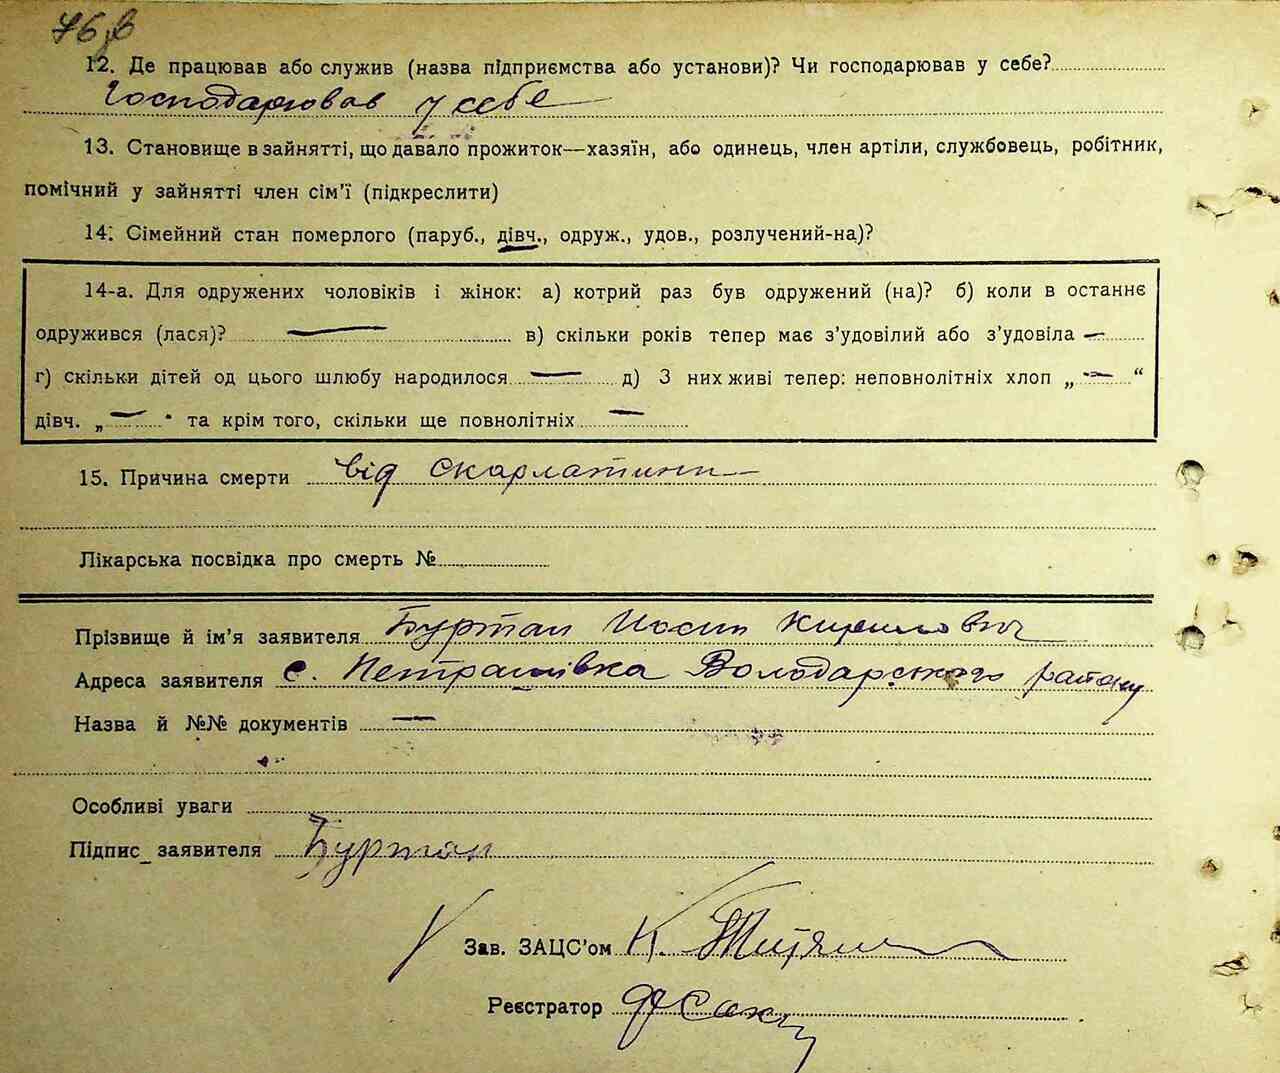 12. Де працював або служив (назва підприємства або установи)? Чи господарював у себе?
Господарював у себе
13. Становище в зайнятті, що давало прожиток—хазяїн, або одинець, член артіли, службовець, робітник,
помічний у зайнятті член сім'ї (підкреслити)
14. Сімейний стан померлого (паруб., дівч., одруж., удов., розлучений-на)?
14-а. Для одружених чоловіків і жінок: а) котрий раз був одружений (на)? б) коли в останнє
одружився (лася)? — в) скільки років тепер має з'удовілий або з'удовіла —
г) скільки дітей од цього шлюбу народилося — д) З них живі тепер: неповнолітніх хлоп „ — “
дівч. „ — " та крім того, скільки ще повнолітніх —
15. Причина смерти від скарлатини
Лікарська посвідка про смерть №
Прізвище й ім'я заявителя Буртал Иосип Кирилович
Адреса заявителя с. Петрашівка Володарського району
Назва й №№ документів —
Особливі уваги
Підпис заявителя Буртал
Зав. ЗАЦС'ом К.
Реєстратор